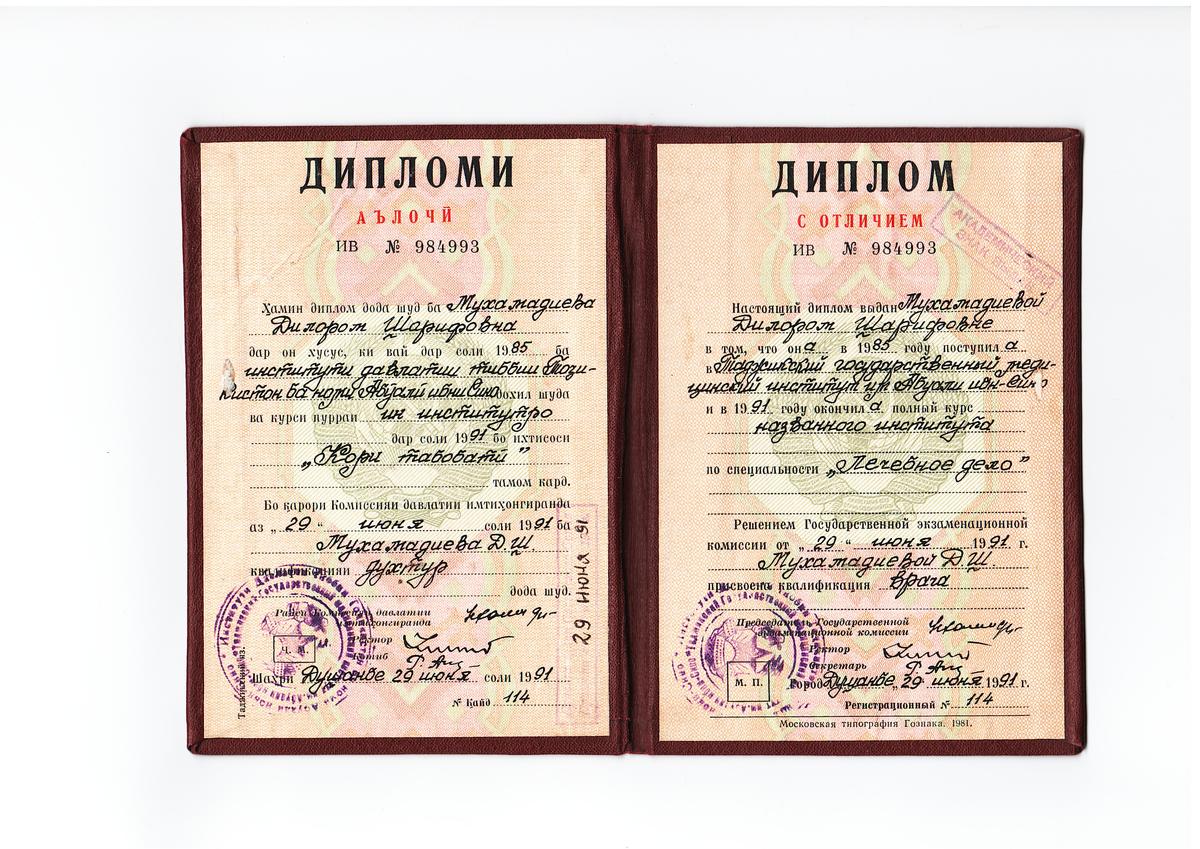 ДИПЛОМИ
АЪЛОЧӢ
ИВ № 984993
Ҳамин диплом дода шуд ба Мухамадиева
Дилором Шарифовна
дар он хусус, ки вай дар соли 1985 ба
институти давлатии тиббии Тоҷи-
кистон ба номи Абӯалӣ ибни Сино дохил шуда
ва курси пурраи ин институтро
дар соли 1991 бо ихтисоси
„Кори табобатӣ”
тамом кард.
Бо қарори Комиссияи давлатии имтиҳонгиранда
аз „29“ июня соли 1991 ба
Мухамадиева Д.Ш.
квалификацияи духтур
дода шуд.
Раиси Комиссияи давлатии
имтиҳонгиранда
Ректор
Котиб
Ҷ. М.
Шаҳри Душанбе 29 июня соли 1991
№ Қайд 114
Таджикский яз.
29 ИЮНЯ 91
ДИПЛОМ
С ОТЛИЧИЕМ
ИВ № 984993
АКАДЕМИЧЕСКИЙ
ЗНАК ВЫДАН
Настоящий диплом выдан Мухамадиевой
Дилором Шарифовне
в том, что она в 1985 году поступила
в Таджикский государственный меди-
цинский институт им. Абуали ибн-Сино
и в 1991 году окончила полный курс
названного института
по специальности „Лечебное дело”
Решением Государственной экзаменационной
комиссии от „29“ июня 1991 г.
Мухамадиевой Д.Ш.
присвоена квалификация врача
Председатель Государственной
экзаменационной комиссии
Ректор
Секретарь
М. П.
Город Душанбе „29 июня 1991 г.
Регистрационный № 114
Московская типография Гознака. 1981.